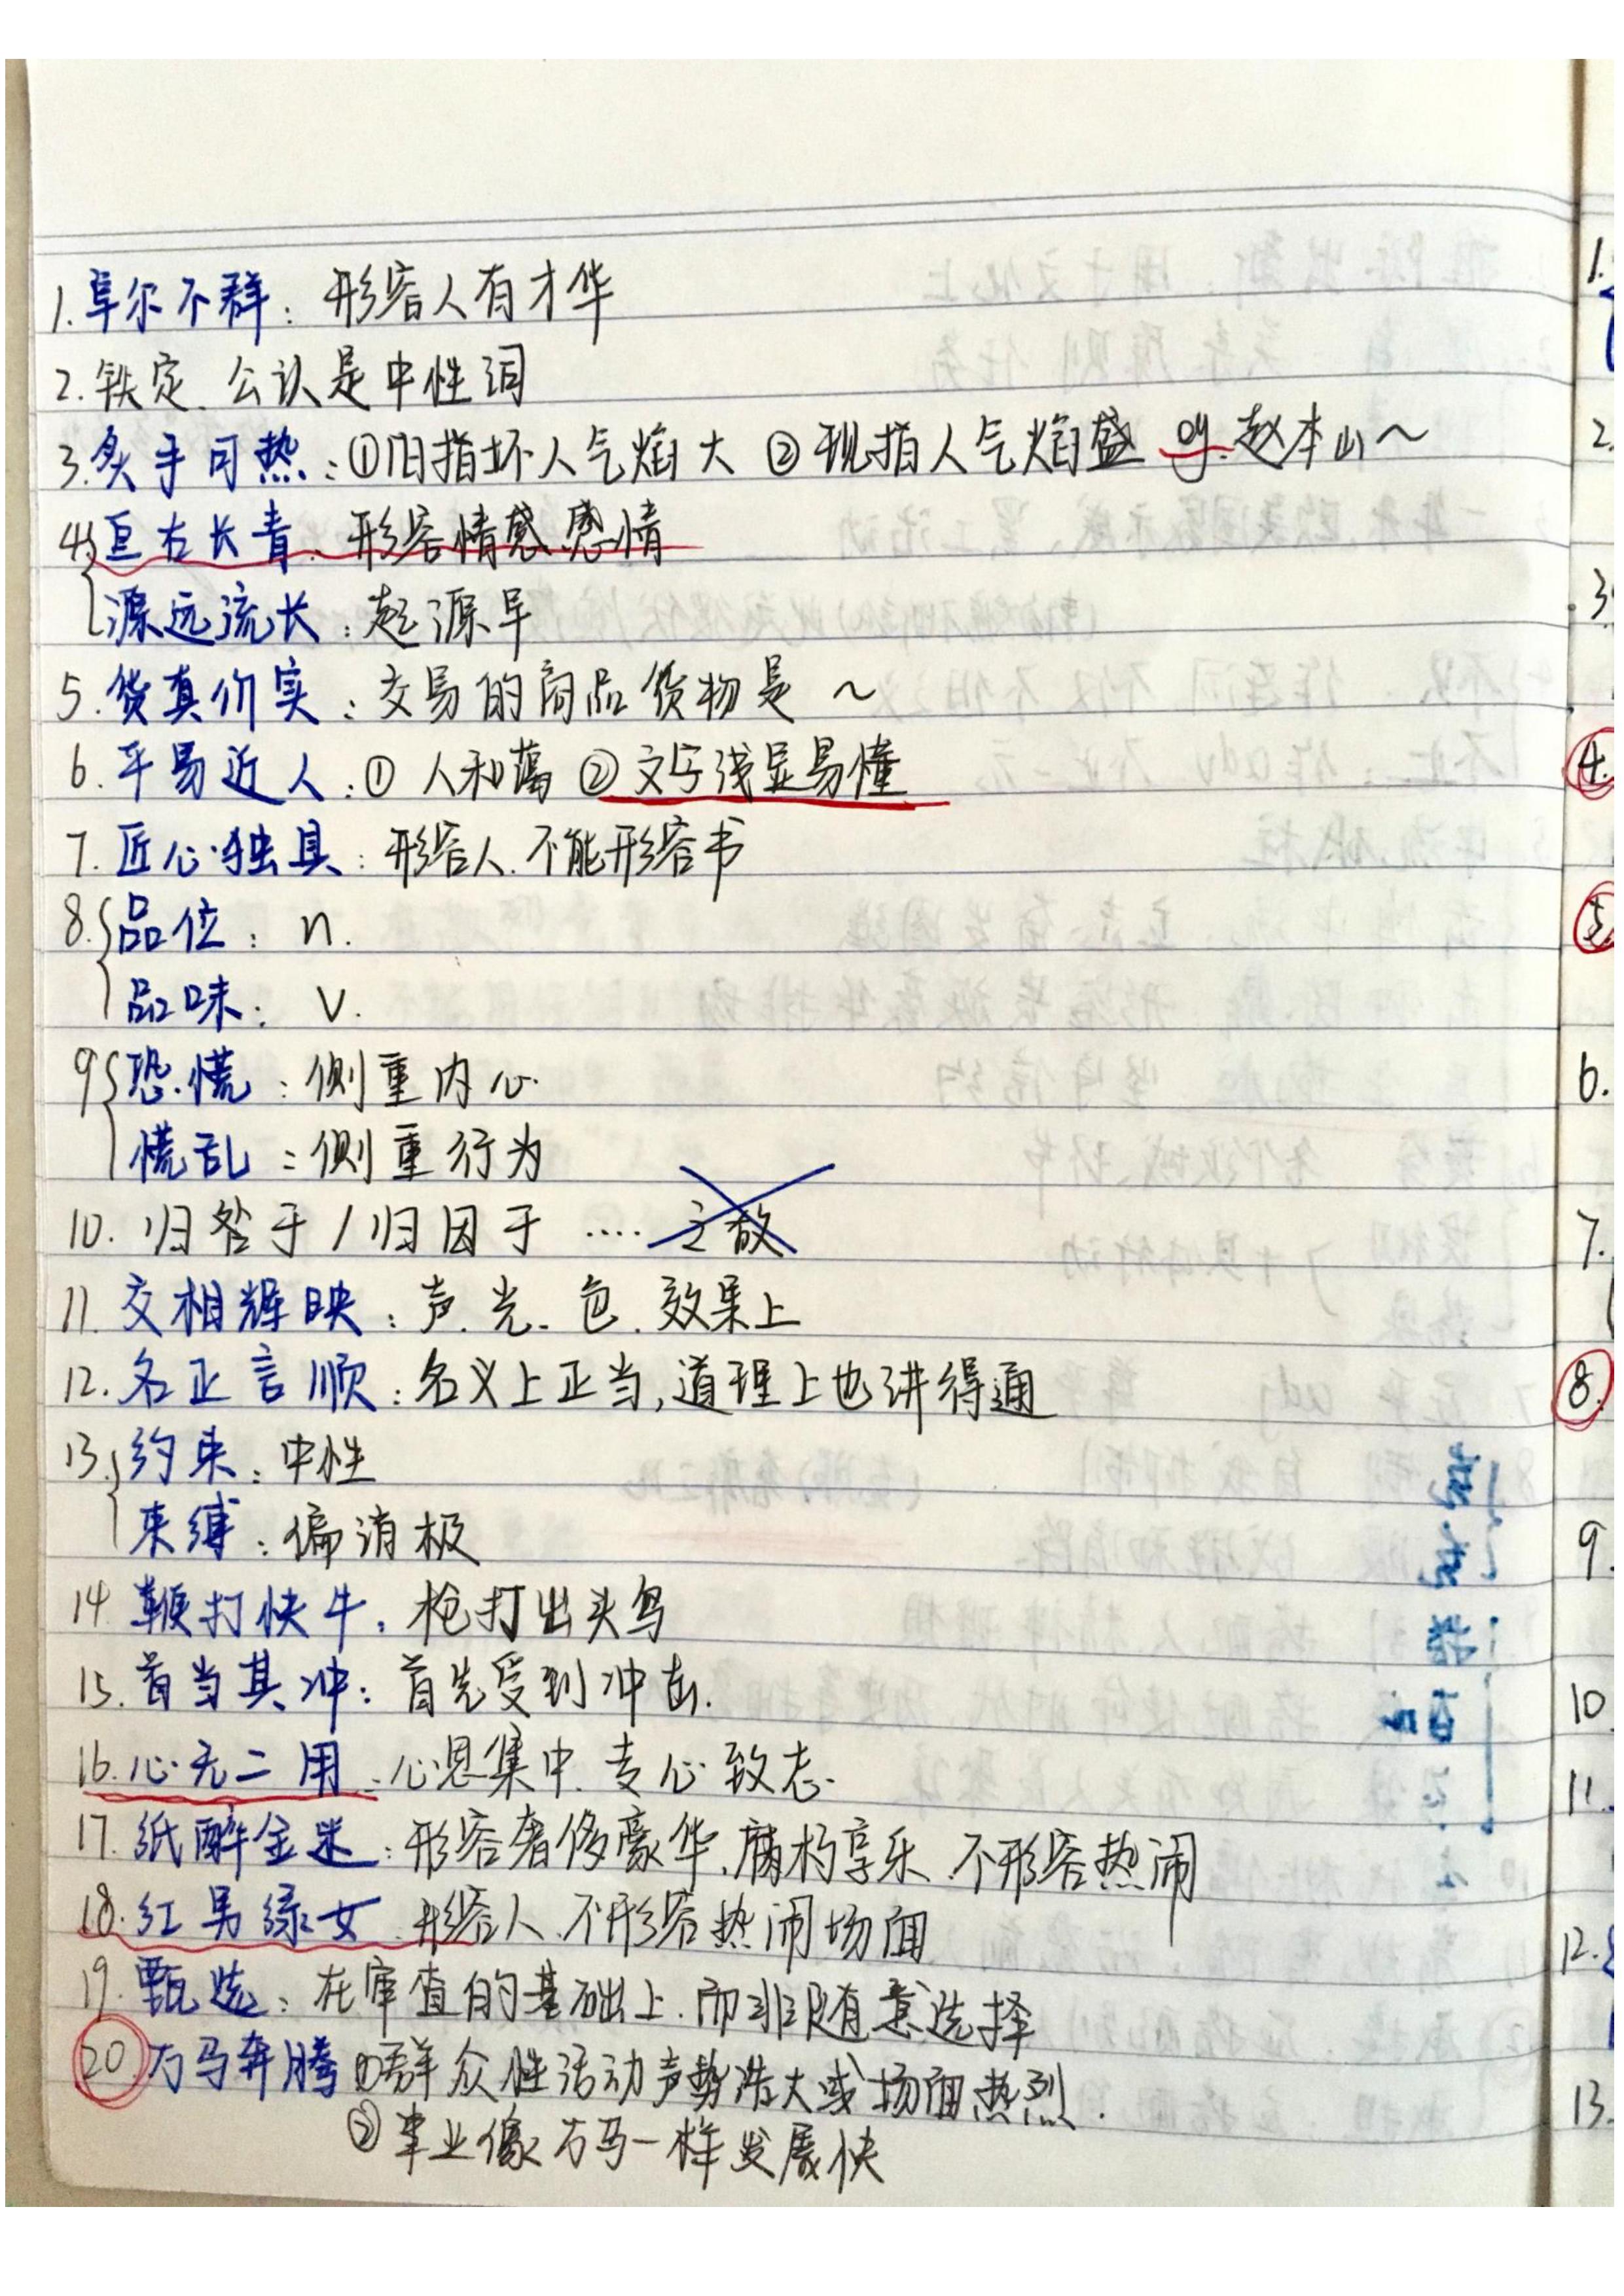 1.卓尔不群：形容人有才华
2.铁定、公认是中性词
3.炙手可热：①旧指坏人气焰大 ②现指人气焰盛 eg:赵本山～
4.亘古长青、形容情感感情
源远流长：起源早
5.货真价实：交易的商品货物是～
6.平易近人：①人和蔼 ②文字浅显易懂
7.匠心独具：形容人.不能形容书
8.品位：n.
品味：v.
9.恐慌：侧重内心
慌乱：侧重行为
10.归咎于/归因于 ....之故
11.交相辉映：声.光.色.效果上
12.名正言顺：名义上正当,道理上也讲得通
13.约束：中性
束缚：偏消极
14.鞭打快牛，枪打出头鸟
15.首当其冲：首先受到冲击.
16.心无二用：心思集中.专心致志.
17.纸醉金迷：形容奢侈豪华.腐朽享乐.不形容热闹
18.红男绿女 形容人.不形容热闹场面
19.甄选：在审查的基础上.而非随意选择
20.万马奔腾①群众性活动声势浩大或场面热烈.
②事业像万马一样发展快
1.
2.
3.
4.
5.
6.
7.
8.
9.
10
11.
12.
13.